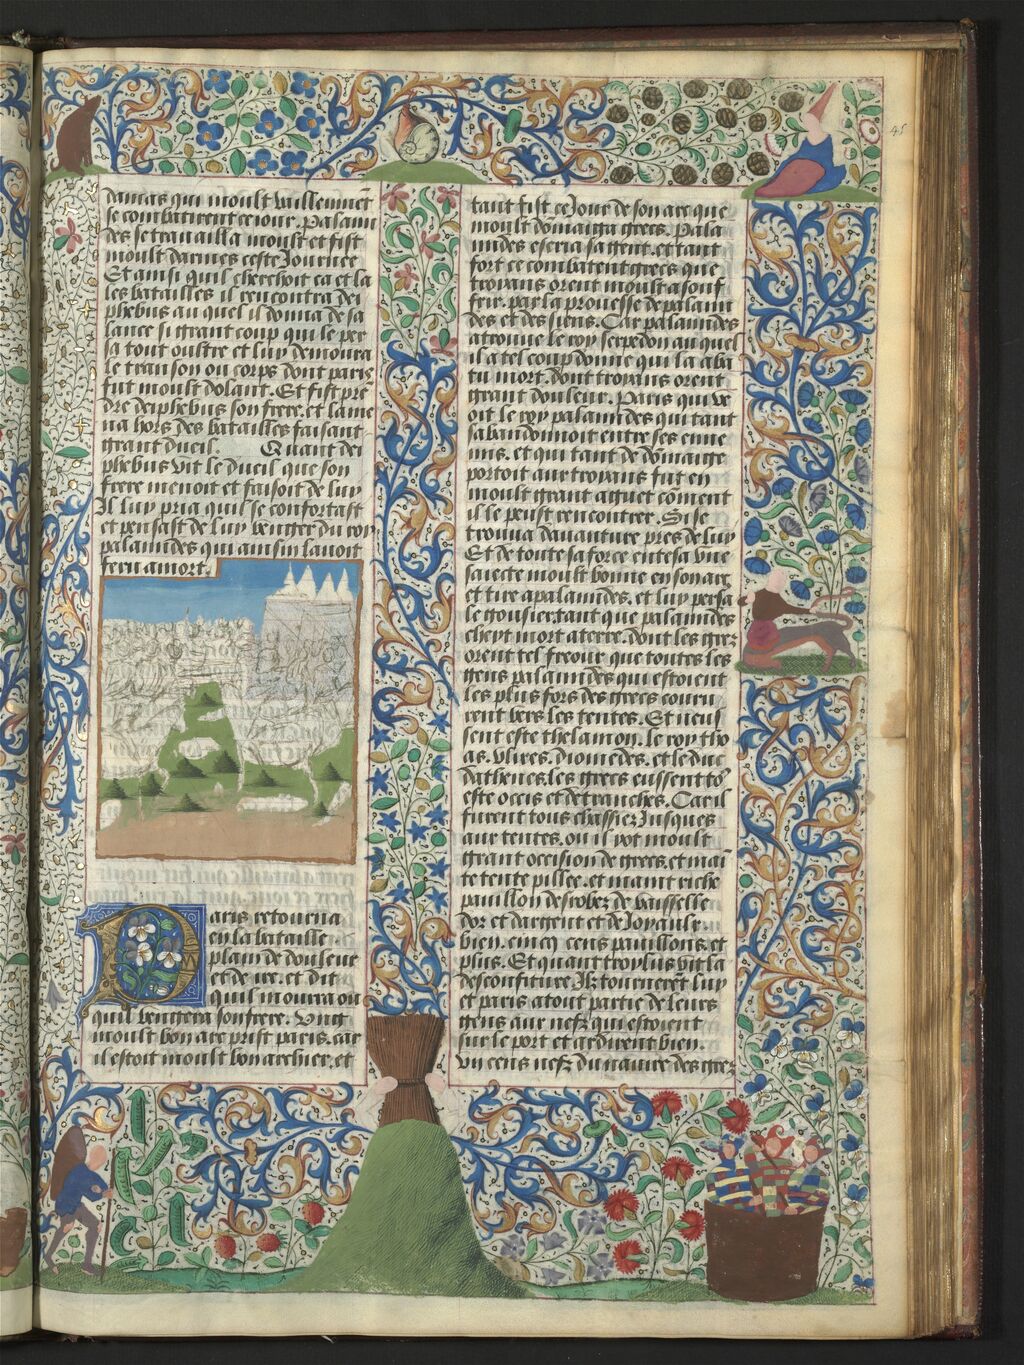 45
damas qui moult vaillemnet
se combatirent ce jour. Palami
des se travailla moult et fist
moult darmes ceste Journee
Et ainsi quil cherchoit ca et la
les batailles il rencontra dei
phebus au quel il donna de sa
lance si grant coup qui le per
sa tout oultre et luy demoura
le tronson ou corps dont paris
fut moult dolant. Et fist prē
dre deiphebus son frere. et lame
na hors des batailles faisant
grant dueil. Quant dei
phebus vit le dueil que son
frere menoit et faisoit de luy
Il luy pria quil se confortast
et pensast de luy venger du roy
palamides qui ainsin lavoit
feru a mort.
Paris retourna
en la bataille
plain de douleur
et de ire. et dit
quil mourra ou
quil vengera son frere. Ung
moult bon arc prist paris. car
il estoit moult bon archier. et
tant fist ce Jour de son arc que
moult domaiga grecs. Pala
mides escria sa gent. et tant
fort ce combatent grecs que
troyans orent moult a souf
frir. par la prouesse de palami
des et des siens. Car palamides
a trouve le roy serpedon au quel
il a tel coup donne qui la aba
tu mort. dont troyans orent
grant douleur. Paris qui ve
oit le roy palamides qui tant
sabandonnoit entre ses enne
mis. et qui tant de domaige
portoit aux troyans fut en
moult grant aguet cōment
il le peust rencontrer. Si se
trouva davanture pres de luy
Et de toute sa force entesa une
saiecte moult bonne en son arc
et tire a palamides. et luy persa
le gousier. tant que palamides
cheyt mort a terre. dont les grez
orent tel freour que toutes les
gens palamides qui estoient
les plus fors des grecs couru
rent vers les tentes. Et neus
sent este thelamon. le roy tho
as. Ulixes. Diomedes. et le duc
dathenes les grecs eussent to9
este occis et detranches. Car il
furent tous chassiez Jusques
aux tentes. ou il yot moult
grant occision de grecs. et mai
te tente pillee. et maint riche
pavillon desrobez de vaisselle
dor et dargent et de Joyeule
bien. cincq cens pavillons. et
plus. Et quant troylus vit la
desconfiture Ilz tournerēt luy
et paris a tout partie de leurs
gens aux nefz qui estoient
sur le port et ardirent bien.
vii cens nefz du navire des grez